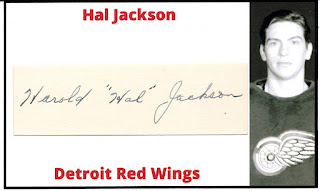 Hal Jackson
Harold "Hal" Jackson
Detroit Red Wings